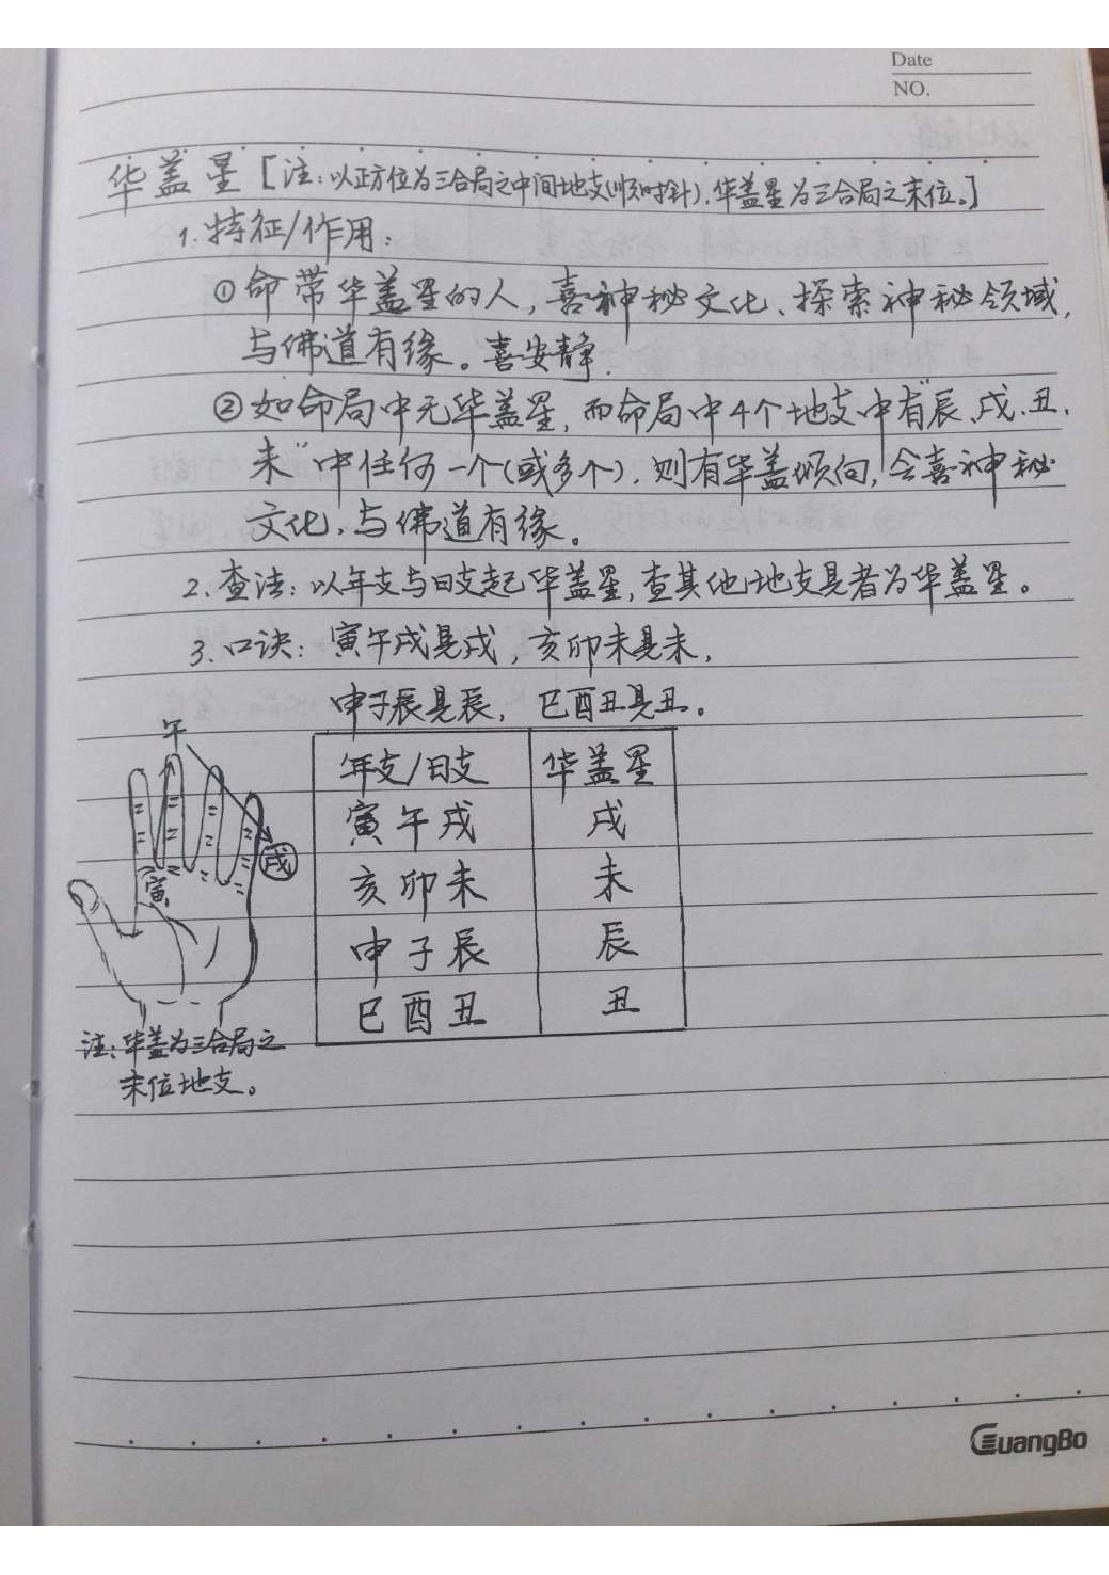 Date
NO.
华盖星[注:以正方位为三合局之中间地支(顺时针).华盖星为三合局之末位。]
1.特征/作用:
①命带华盖星的人,喜神秘文化、探索神秘领域,
与佛道有缘。喜安静.
②如命局中无华盖星,而命局中4个地支中有"辰、戌、丑、
未"中任何一个(或多个).则有华盖倾向,会喜神秘
文化,与佛道有缘。
2.查法:以年支与日支起华盖星,查其他地支见者为华盖星。
3.口诀:寅午戌见戌,亥卯未见未,
申子辰见辰,巳酉丑见丑。
午
戌
寅
年支/日支 华盖星
寅午戌 戌
亥卯未 未
申子辰 辰
巳酉丑 丑
注:华盖为三合局之
末位地支。
GuangBo